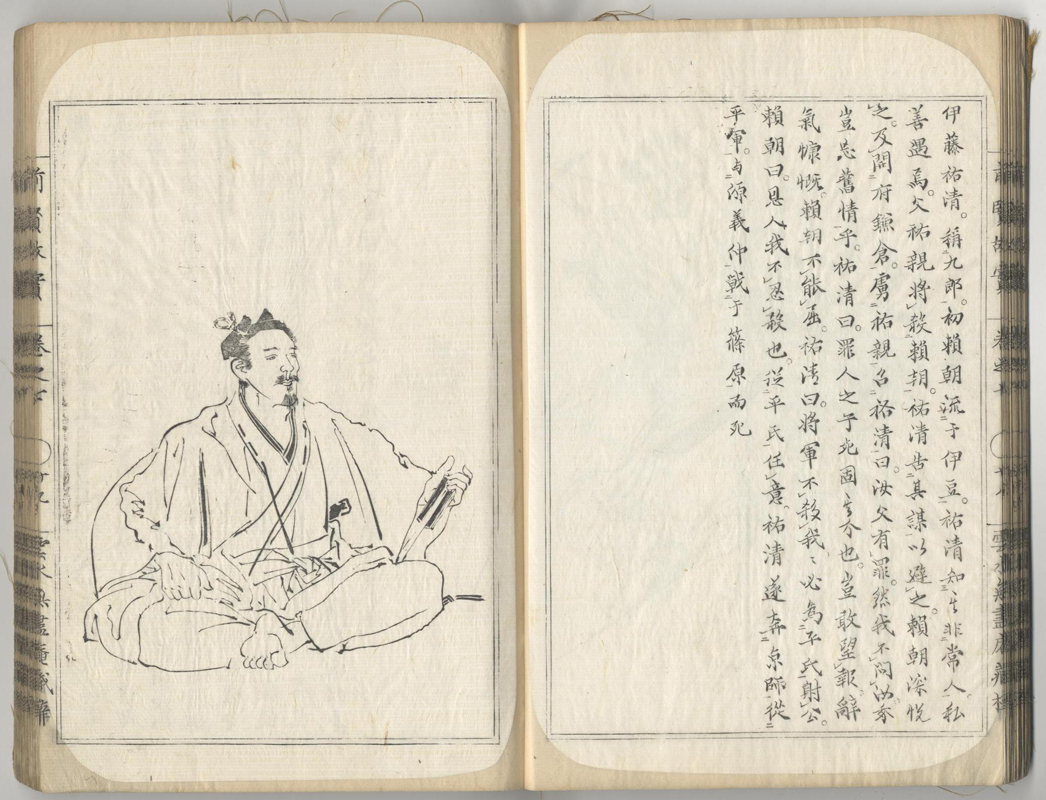 伊藤祐清。稱九郎。初賴朝流于伊豆。祐清知其非常人私
善遇焉。父祐親將殺賴朝。祐清告其謀以避之。賴朝深悦
之。及開府鎌倉。虜祐親召祐清曰。汝父有罪。然我不問汝
豈忘舊情乎。祐清曰。罪人之子死固其分也。豈敢望報。辭
氣慷慨。賴朝不能屈。祐清曰將軍不殺我。我必爲平氏射公。
賴朝曰。恩人我不忍殺也。從平氏任意。祐清遂奔京師從
平軍。与源義仲戰于篠原而死
前賢故實
卷之七
廿九